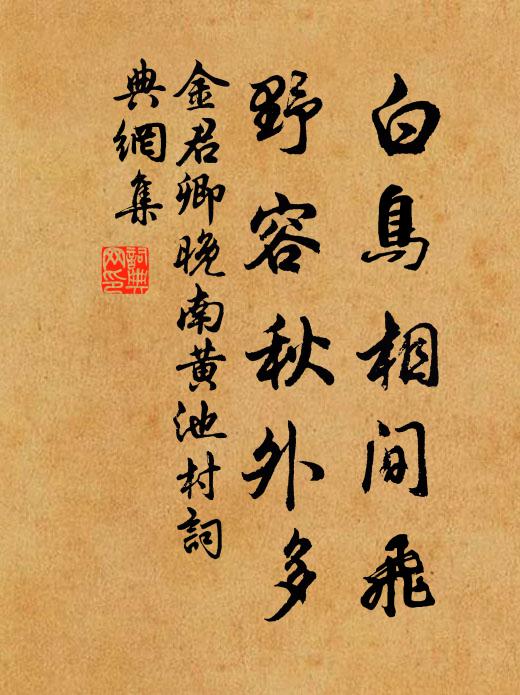 白鳥相間飛
野容秋外多
金君卿晚南黄池村詞
典網集
詞典
网印